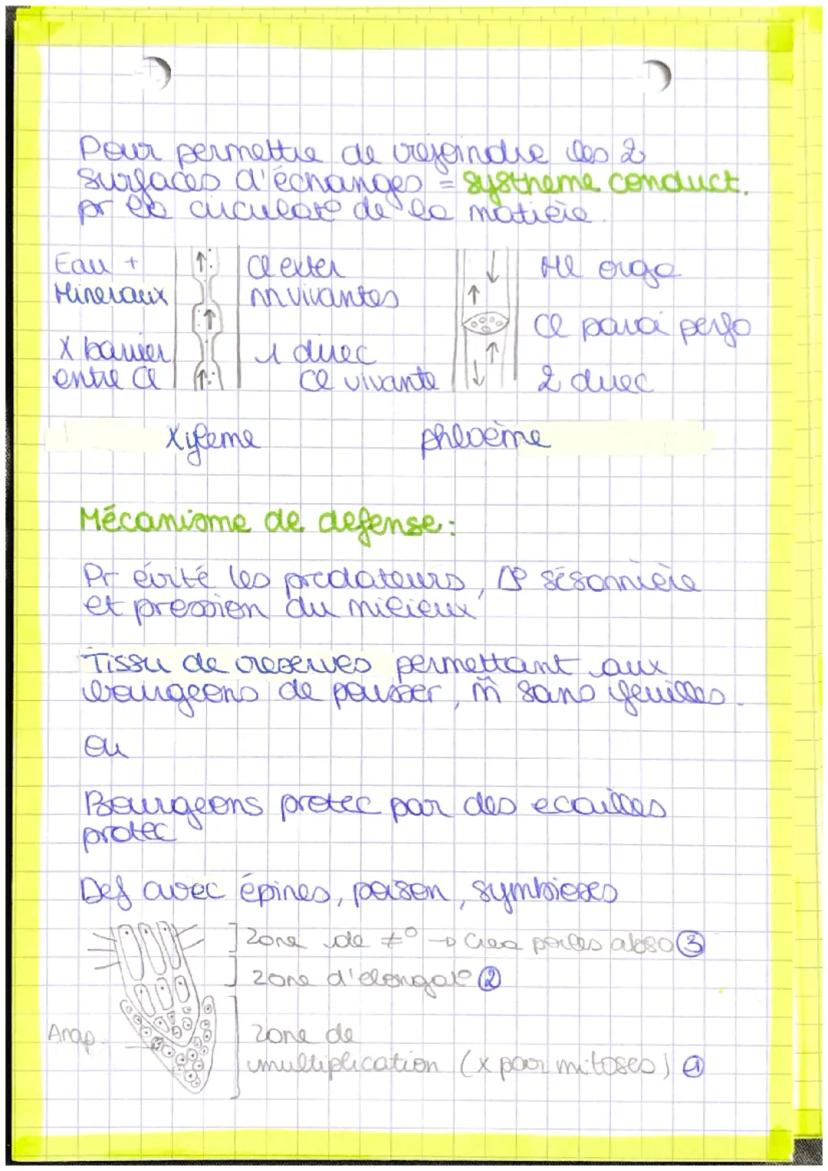 Pour permettre de rejoindre les 2
surfaces d'échanges = systheme conduct.
pr la circulat° de la matière.
Eau +
Mineraux
X barrier
entre Cl
Cl exter
mvivantes
1 direc
Cl vivante
Ml orga
Cl paroi perfo
2 direc
Xyleme
phloème
Mécanisme de defense :
Pr évité les predateurs, Δ° sésonnière
et pression du milieux
Tissu de reserves permettant aux
bourgeons de pousser, m̂ sans feuilles.
ou
Bourgeons protec par des ecailles
protec
Def avec épines, poison, symbioses
Zone de ≠° → Crea poiles abso ③
zone d'élongat° ②
Anap.
zone de
multiplication (x par mitoses) ①